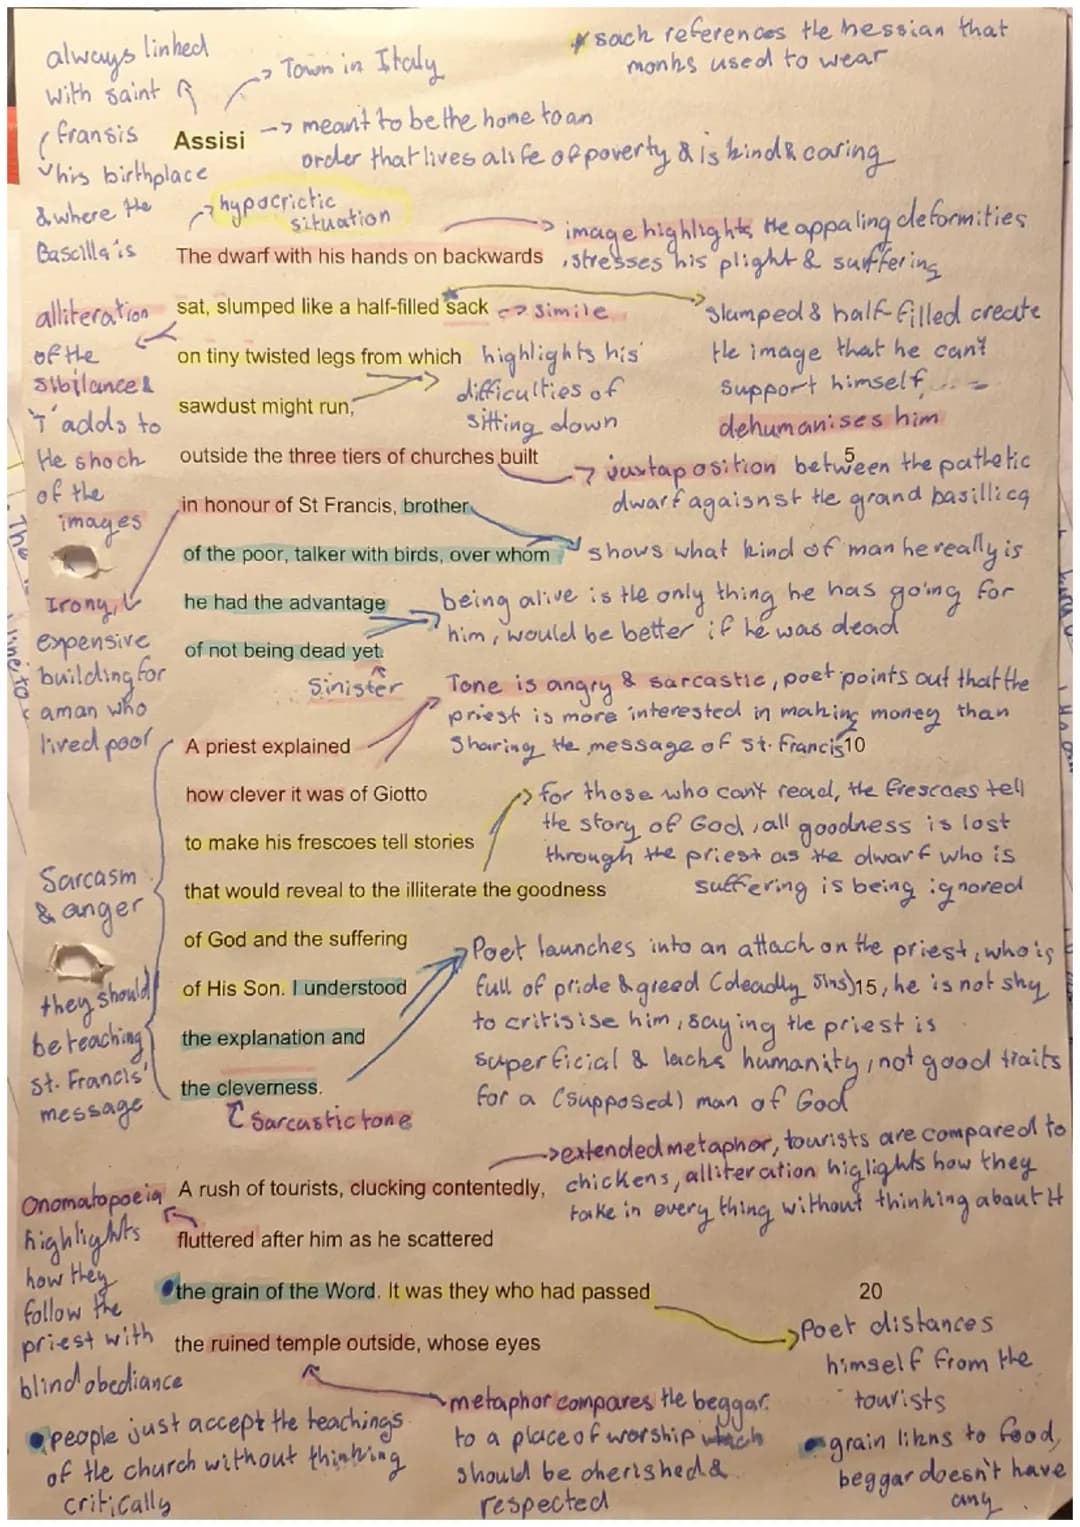 always linked
with saint
fransis
his birthplace
& where the
Bascilla is
Town in Italy
* sack references the hessian that
monks used to wear
Assisi
-> meant to be the home to an
order that lives a life of poverty & is kind & caring
hypocrictic
situation
The dwarf with his hands on backwards
image highlights the appaling deformities
, stresses his plight & suffering
sat, slumped like a half-filled sack
simile
slumped & half-filled create
the image that he can't
support himself,...
dehumanises him
alliteration
of the
sibilance &
'T' adds to
the shock
of the
images
on tiny twisted legs from which
sawdust might run,
highlights his
difficulties of
sitting down
outside the three tiers of churches built
5
juxtaposition between the pathetic
dwarf agaisnst the grand basillica
in honour of St Francis, brother
of the poor, talker with birds, over whom
shows what kind of man he really is
he had the advantage
of not being dead yet.
being alive is the only thing he has going for
him, would be better if he was dead
Sinister
Irony,
expensive
building for
a man who
lived poor
Tone is angry & sarcastic, poet points out that the
priest is more interested in making money than
sharing the message of St. Francis
10
A priest explained
how clever it was of Giotto
to make his frescoes tell stories
that would reveal to the illiterate the goodness
of God and the suffering
of His Son. I understood
the explanation and
the cleverness.
for those who can't read, the frescoes tell
the story of God, all goodness is lost
through the priest as the dwarf who is
suffering is being ignored
Sarcasm
& anger
they should
be teaching
St. Francis'
message
Poet launches into an attack on the priest, who is
full of pride & greed (deadly sins)15, he is not shy
to critisise him, saying the priest is
superficial & lacks humanity, not good traits
for a (supposed) man of God
Sarcastic tone
->extended metaphor, tourists are compared to
chickens, alliteration higlights how they
take in every thing without thinking about it
A rush of tourists, clucking contentedly,
fluttered after him as he scattered
the grain of the Word. It was they who had passed
20
the ruined temple outside, whose eyes
Onomatopoeia
highlights
how they
follow the
priest with
blind obediance
Poet distances
himself from the
tourists
metaphor compares the beggar
to a place of worship which
should be cherished &
respected
people just accept the teachings
of the church without thinking
critically
grain likns to food,
beggar doesn't have
any.